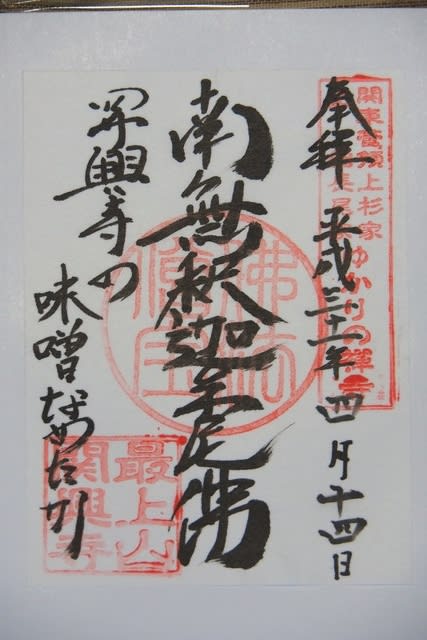 関東管領上杉家
長尾家ゆかりの禅寺
奉拝 平成三十一年四月十四日
南無釈迦牟尼佛
佛法
僧宝
関興寺の
味噌なめたか
最上山
関興寺